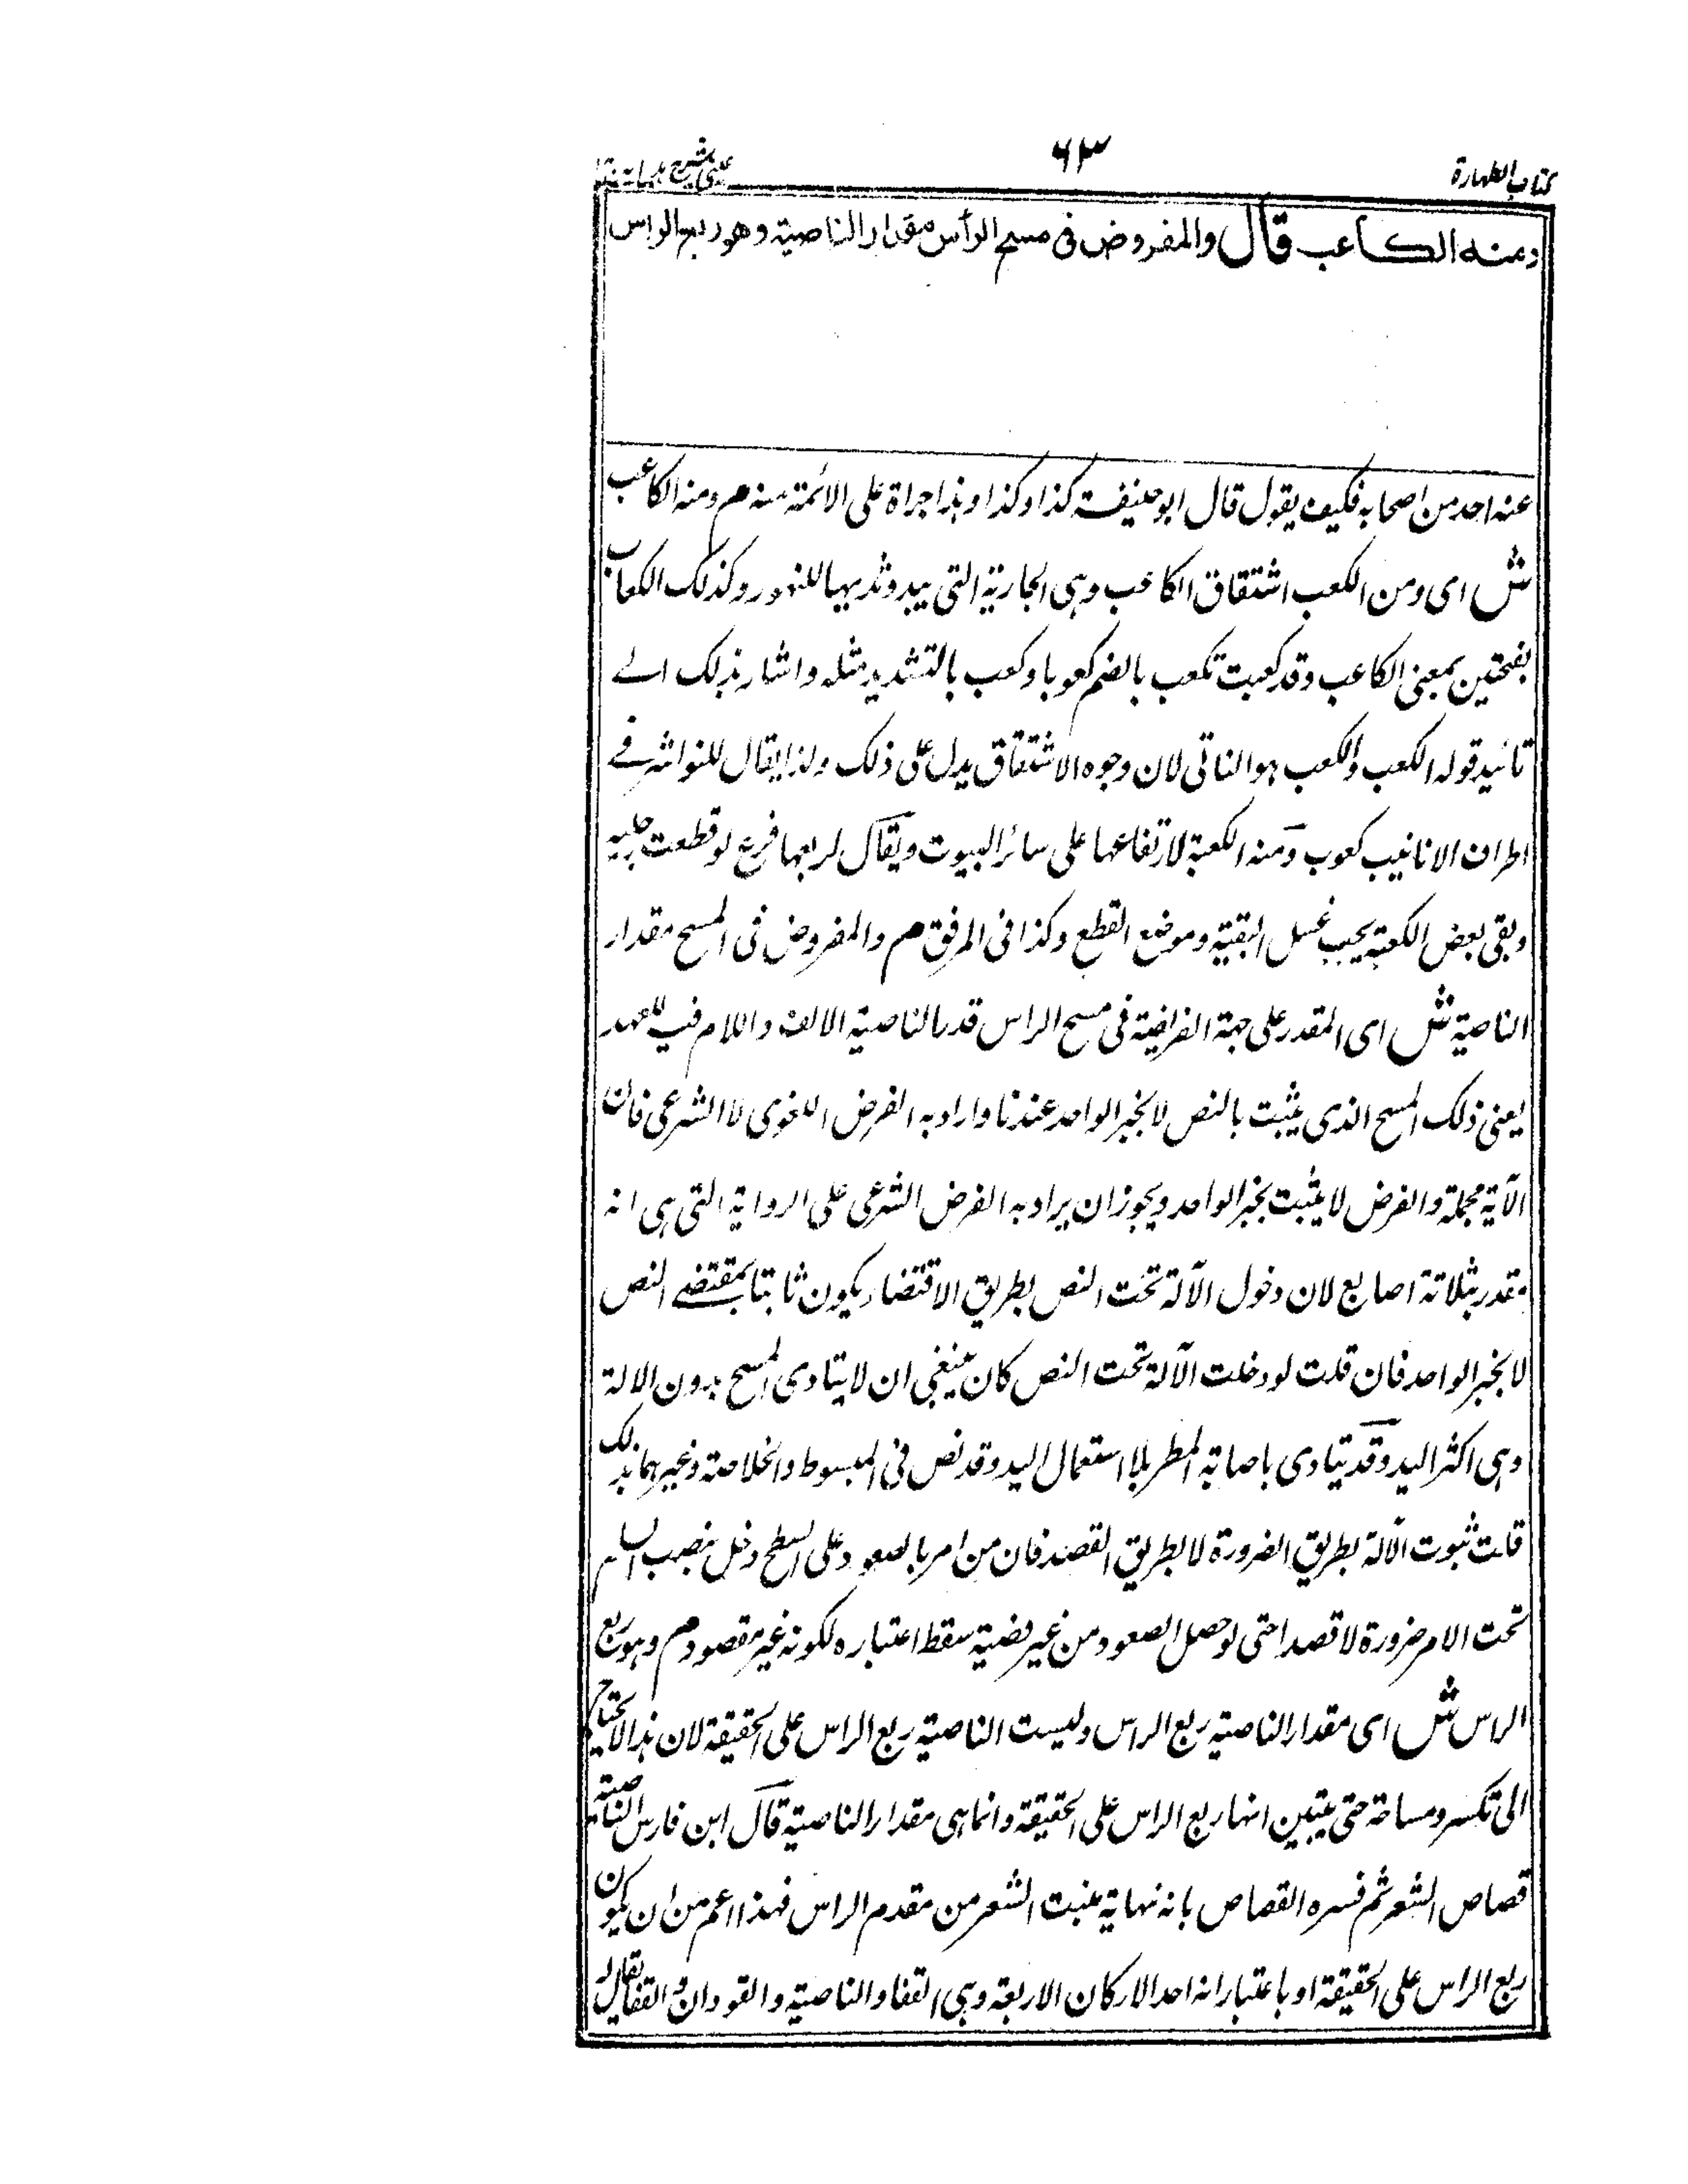 كتاب الطهارة
٦٣
عينى شرح
ومنه الكاعب قال والمفروض فى مسح الرأس مقدار الناصية وهو ربع الراس
عنه احد من اصحابه فكيف يقول قال ابو حنيفة كذا وكذا وهذا جراة على الائمة منه م ومنه الكاعب
ش اى ومن الكعب اشتقاق الكاعب وهى الجارية التى يبدو ثديها للنهود وكذلك الكعاب
بفتحتين بمعنى الكاعب وقد كعبت تكعب بالضم كعوبا وكعب بالتشديد مثله واشار بذلك الے
تائيد قوله الكعب والكعب هو الناتى لان وجوه الاشتقاق يدل على ذلك ولذا يقال للنواشر فے
اطراف الانابيب كعوب ومنه الكعبة لارتفاعها على سائر البيوت ويقال لربعها فرع لو قطعت رجليه
وبقى بعض الكعبة يجب غسل البقية وموضع القطع وكذا فى المرفق م والمفروض فى المسح مقدار
الناصية ش اى المقدر على جهة الفرضية فى مسح الراس قدر الناصية الالف واللام فيه للعهد
يعنى ذلك المسح الذى يثبت بالنص لا بخبر الواحد عندنا واراد به الفرض اللغوى لا الشرعى فان
الآية مجملة والفرض لا يثبت بخبر الواحد ويجوز ان يراد به الفرض الشرعى على الرواية التى هى انه
مقدر بثلاثة اصابع لان دخول الآلة تحت النص بطريق الاقتضاء يكون ثابتا بمقتضے النص
لا بخبر الواحد فان قلت لو دخلت الآلة تحت النص كان ينبغى ان لا يتادى المسح بدون الالة
وهى اكثر اليد وقد يتادى باصابة المطر بلا استعمال اليد وقد نص فى المبسوط والخلاصة وغيرهما بذلك
قلت ثبوت الآلة بطريق الضرورة لا بطريق القصد فان من امر بالصعود على السطح دخل نصب السلم
تحت الامر ضرورة لا قصدا حتى لو حصل الصعود من غير نصبه سقط اعتباره لكونه غير مقصود م وهو ربع
الراس ش اى مقدار الناصية ربع الراس وليست الناصية ربع الراس على الحقيقة لان هذا لا يحتاج
الى تكسر ومساحة حتى يتبين انها ربع الراس على الحقيقة وانما هى مقدار الناصية قال ابن فارس الناصية
قصاص الشعر ثم فسره القصاص بانه نهاية منبت الشعر من مقدم الراس فهذا اعم من ان يكون
ربع الراس على الحقيقة او باعتبار انه احد الاركان الاربعة وهى القفا والناصية والفودان والقفا يقال له